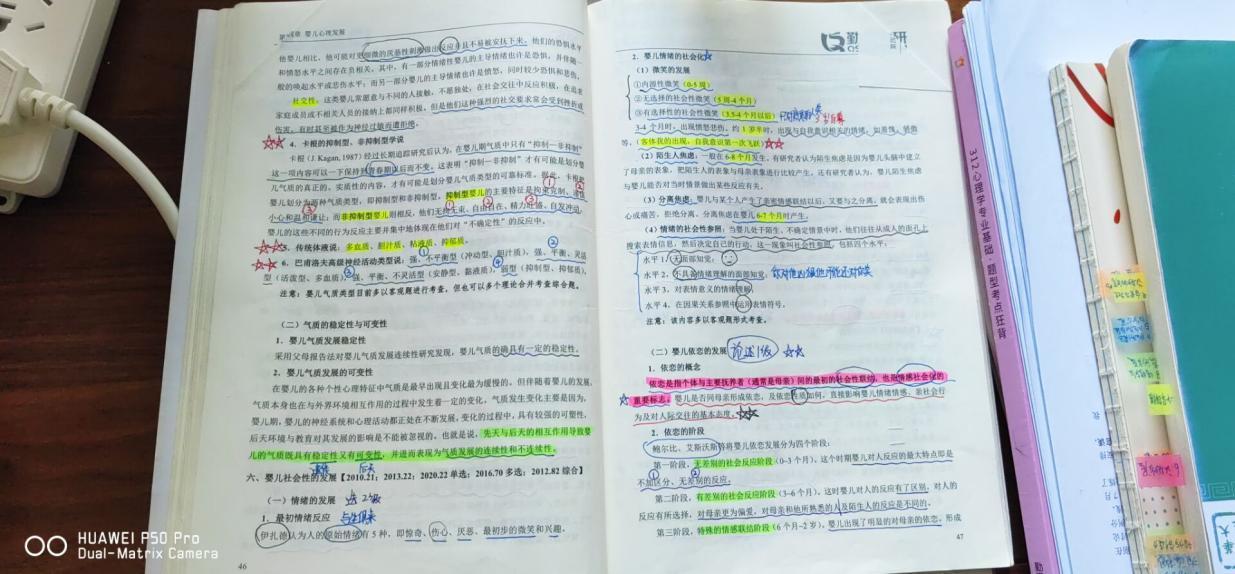 婴儿心理发展
他婴儿相比，他可能对更细微的厌恶性刺激做出反应并且不易被安抚下来。他们的恐惧水平
和愤怒水平之间存在负相关。其中，有一部分情绪性婴儿的主导情绪也许是恐惧，并伴随一
般的唤起水平或悲伤水平；而另一部分婴儿的主导情绪也许是愤怒，同时较少恐惧和悲伤。
社交性。这类婴儿常愿意与不同的人接触，不愿独处；在社会交往中反应积极，在追求
家庭成员或不相关人员的接纳上都同样积极。但是他们这种强烈的社交要求常会受到挫折或
伤害，有时甚至被作为神经过敏而遭拒绝。
4．卡根的抑制型、非抑制型学说
卡根（J. Kagan, 1987）经过长期追踪研究后认为，在婴儿期气质中只有“抑制—非抑制”
这一项内容可以一下保持到青春期以后而不变。这表明“抑制—非抑制”才有可能是划分婴
儿气质的真正的、实质性的内容，才有可能是划分婴儿气质类型的可靠标准。据此，卡根把
婴儿划分为两种气质类型，即抑制型和非抑制型。抑制型婴儿的主要特征是拘束克制、谨慎
小心和温和谦让；而非抑制型婴儿则相反，他们无拘无束、自由自在、精力旺盛、自发冲动。
婴儿的这些不同的行为反应主要并集中地体现在他们对“不确定性”的反应中。
5．传统体液说：多血质、胆汁质、粘液质、抑郁质。
6．巴甫洛夫高级神经活动类型说：强、不平衡型（冲动型、胆汁质），强、平衡、灵活
型（活泼型、多血质），强、平衡、不灵活型（安静型、黏液质），弱型（抑制型、抑郁质）。
注意：婴儿气质类型目前多以客观题进行考查，但也可以多个理论合并考查综合题。
（二）气质的稳定性与可变性
1．婴儿气质发展稳定性
采用父母报告法对婴儿气质发展连续性研究发现，婴儿气质的确具有一定的稳定性。
2．婴儿气质发展的可变性
在婴儿的各种个性心理特征中气质是最早出现且变化最为缓慢的。但伴随着婴儿的发展，
气质本身也在与外界环境相互作用的过程中发生着一定的变化，气质发生变化主要是因为，
婴儿期，婴儿的神经系统和心理活动都正处在不断发展，变化的过程中，具有较强的可塑性，
后天环境与教育对其发展的影响是不能被忽视的。也就是说，先天与后天的相互作用导致婴
儿的气质既具有稳定性又有可变性，并进而表现为气质发展的连续性和不连续性。
先天 后天
六、婴儿社会性的发展【2010.21；2013.22；2020.22 单选；2016.70 多选；2012.82 综合】
（一）情绪的发展
1．最初情绪反应 与生俱来
伊扎德认为人的原始情绪有 5 种，即惊奇、伤心、厌恶、最初步的微笑和兴趣。
46
2．婴儿情绪的社会化
（1）微笑的发展
①内源性微笑（0-5 周）
②无选择的社会性微笑（5 周-4 个月）
③有选择性的社会性微笑（3.5-4 个月以后）
3-4 个月时，出现愤怒悲伤。约 1 岁半时，出现与自我意识相关的情绪，如羞愧、骄傲
等。（客体我的出现，自我意识第一次飞跃）
（2）陌生人焦虑：一般在 6-8 个月发生，有研究者认为陌生焦虑是因为婴儿头脑中建立
了母亲的表象，把陌生人的表象与母亲表象进行比较产生，还有研究者认为，婴儿陌生焦虑
与婴儿能否对当时情景做出某些反应有关。
（3）分离焦虑：婴儿与某个人产生了亲密情感联结以后，又要与之分离，就会表现出伤
心或痛苦，拒绝分离，分离焦虑在婴儿 6-7 个月时产生。
（4）情绪的社会性参照：当婴儿处于陌生、不确定情景中时，他们往往从成人的面孔上
搜索表情信息，然后决定自己的行动。这一现象叫社会性参照。包括四个水平：
水平 1．无面部知觉；
水平 2．不具备情绪理解的面部知觉；
水平 3．对表情意义的情绪理解。
水平 4．在因果关系参照中运用表情符号。
注意：该内容多以客观题形式考查。
（二）婴儿依恋的发展
1．依恋的概念
依恋是指个体与主要抚养者（通常是母亲）间的最初的社会性联结，也是情感社会化的
重要标志。婴儿是否同母亲形成依恋，及依恋性质如何，直接影响婴儿情绪情感、亲社会行
为及对人际交往的基本态度。
2．依恋的阶段
鲍尔比、艾斯沃斯等将婴儿依恋发展分为四个阶段：
第一阶段，无差别的社会反应阶段（0~3 个月）。这个时期婴儿对人反应的最大特点是
不加区分、无差别的反应。
第二阶段，有差别的社会反应阶段（3~6 个月）。这时婴儿对人的反应有了区别，对人的
反应有所选择，对母亲更为偏爱，对母亲和他所熟悉的人及陌生人的反应是不同的。
第三阶段，特殊的情感联结阶段（6 个月~2 岁）。婴儿出现了明显的对母亲的依恋，形成
47
312心理学专业基础·题型考点狂背
HUAWEI P50 Pro
Dual-Matrix Camera